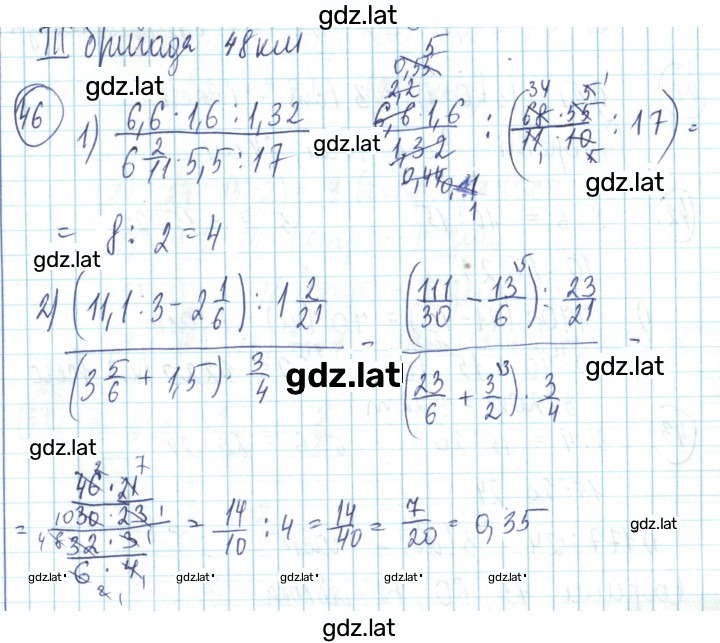 gdz.lat
III бригада 48 км
gdz.lat
46 1) (6,6 · 1,6 : 1,32) / (6 2/11 · 5,5 : 17) gdz.lat (6,6 · 1,6) / 1,32 : ((68 · 55) / (11 · 10) : 17) =
gdz.lat
= 8 : 2 = 4
gdz.lat
2) ((11,1 : 3 - 2 1/6) : 1 2/21) / ((3 5/6 + 1,5) · 3/4) = ((111/30 - 13/6) : 23/21) / ((23/6 + 3/2) · 3/4) =
gdz.lat gdz.lat
gdz.lat
= ((46 · 21) / (30 · 23)) / ((32 · 3) / (6 · 4)) = 14/10 : 4 = 14/40 = 7/20 = 0,35
gdz.lat
gdz.lat gdz.lat gdz.lat gdz.lat gdz.lat
gdz.lat